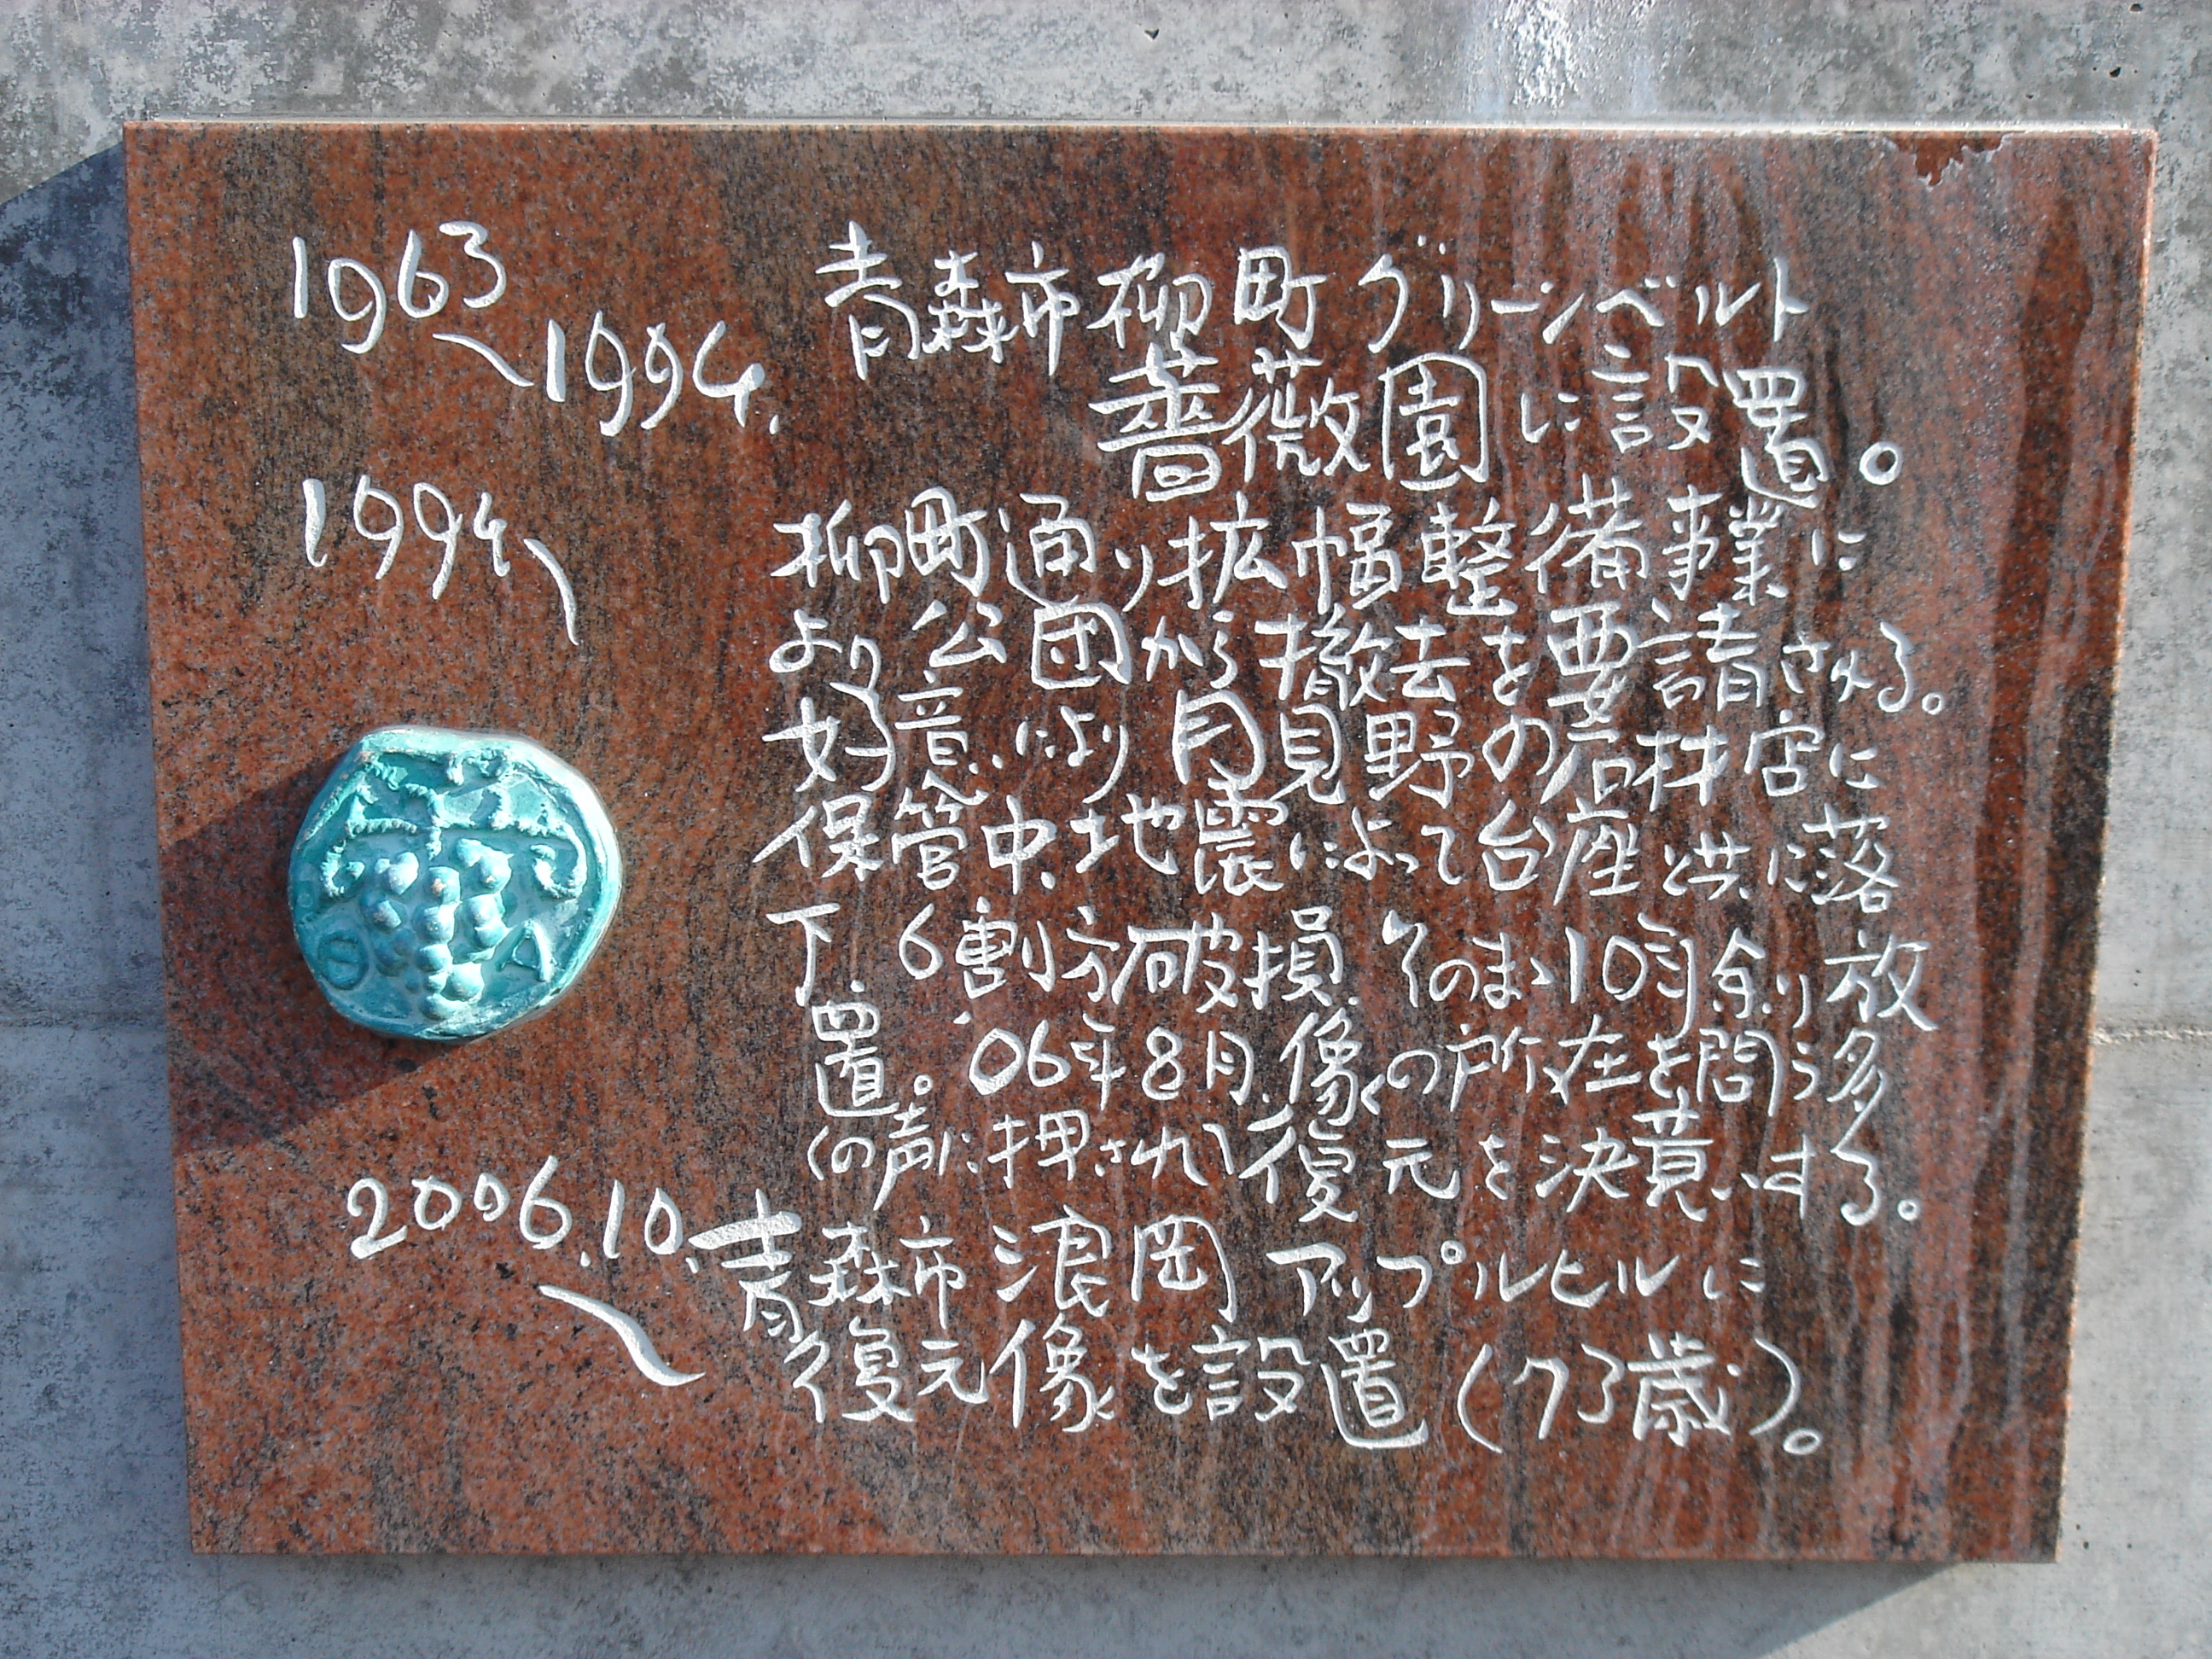 1963
~1994.
青森市柳町グリーンベルト
薔薇園に設置。
1994~
柳町通り拡幅整備事業に
より公団から撤去を要請される。
好意により月見野の石材店に
保管中、地震によって台座と共に落
下、6割方破損、そのまゝ10ヶ月余り放
置。'06年8月、像の所在を問う多
くの声に押されて復元を決意する。
2006.10.~
青森市浪岡アップルヒルに
復元像を設置(73歳)。
A